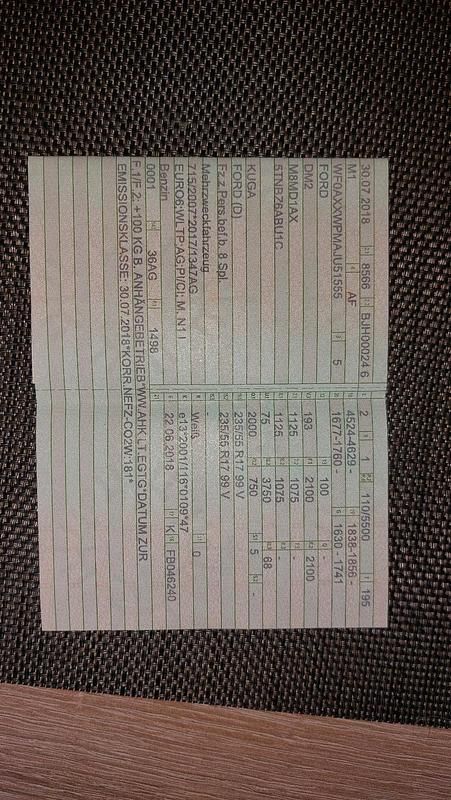 30.07.2018 8566 BJH00024 6 2 1 110/5500 195
M1 AF 4524-4629 - 1838-1856 -
WF0AXXWPMAJU51555 5 1677-1760 - 1630 - 1741
FORD - 100 -
DM2 193 2100 2100
M8MD1AX 1125 1075 -
51NPZ6ABU1C 1125 1075 -
75 3750 68
KUGA 2000 750 5 -
FORD (D) 235/55 R17 99 V
Fz.z.Pers.bef.b. 8 Spl. 235/55 R17 99 V
Mehrzweckfahrzeug -
715/2007*2017/1347AG Weiß 0
EURO6;WLTP;AG;PI/CI; M, N1 I e13*2001/116*0109*47
Benzin 22.06.2018 K FB046240
0001 36AG 1498
F.1/F.2: +100 KG B. ANHÄNGEBETRIEB*WW.AHK LT.EGTG*DATUM ZUR
EMISSIONSKLASSE: 30.07.2018*KORR.NEFZ-CO2W:181*